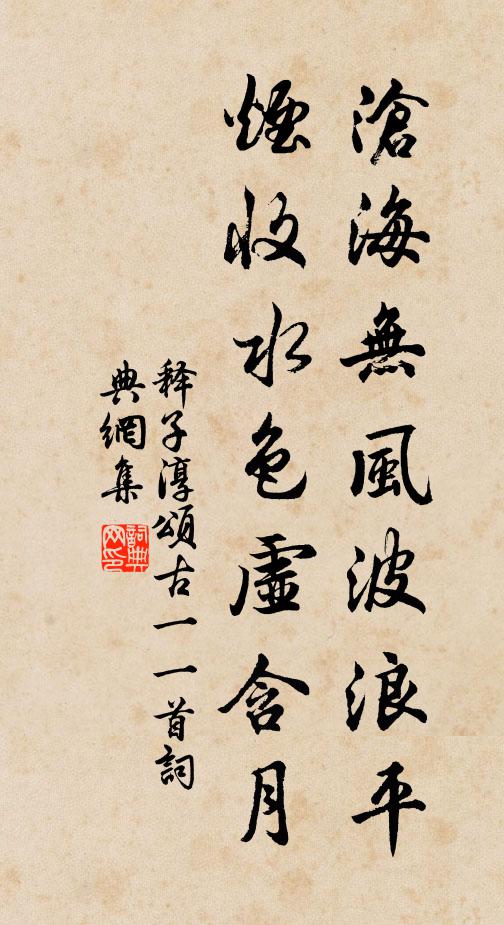 滄海無風波浪平
煙收水色虛含月
释子淳頌古一一首詞
典網集
詞典
网印